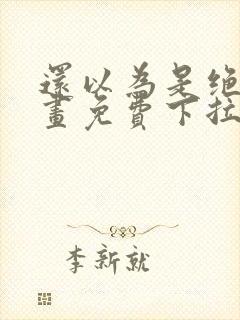 還以為是绝
畫免費下拉
李新就